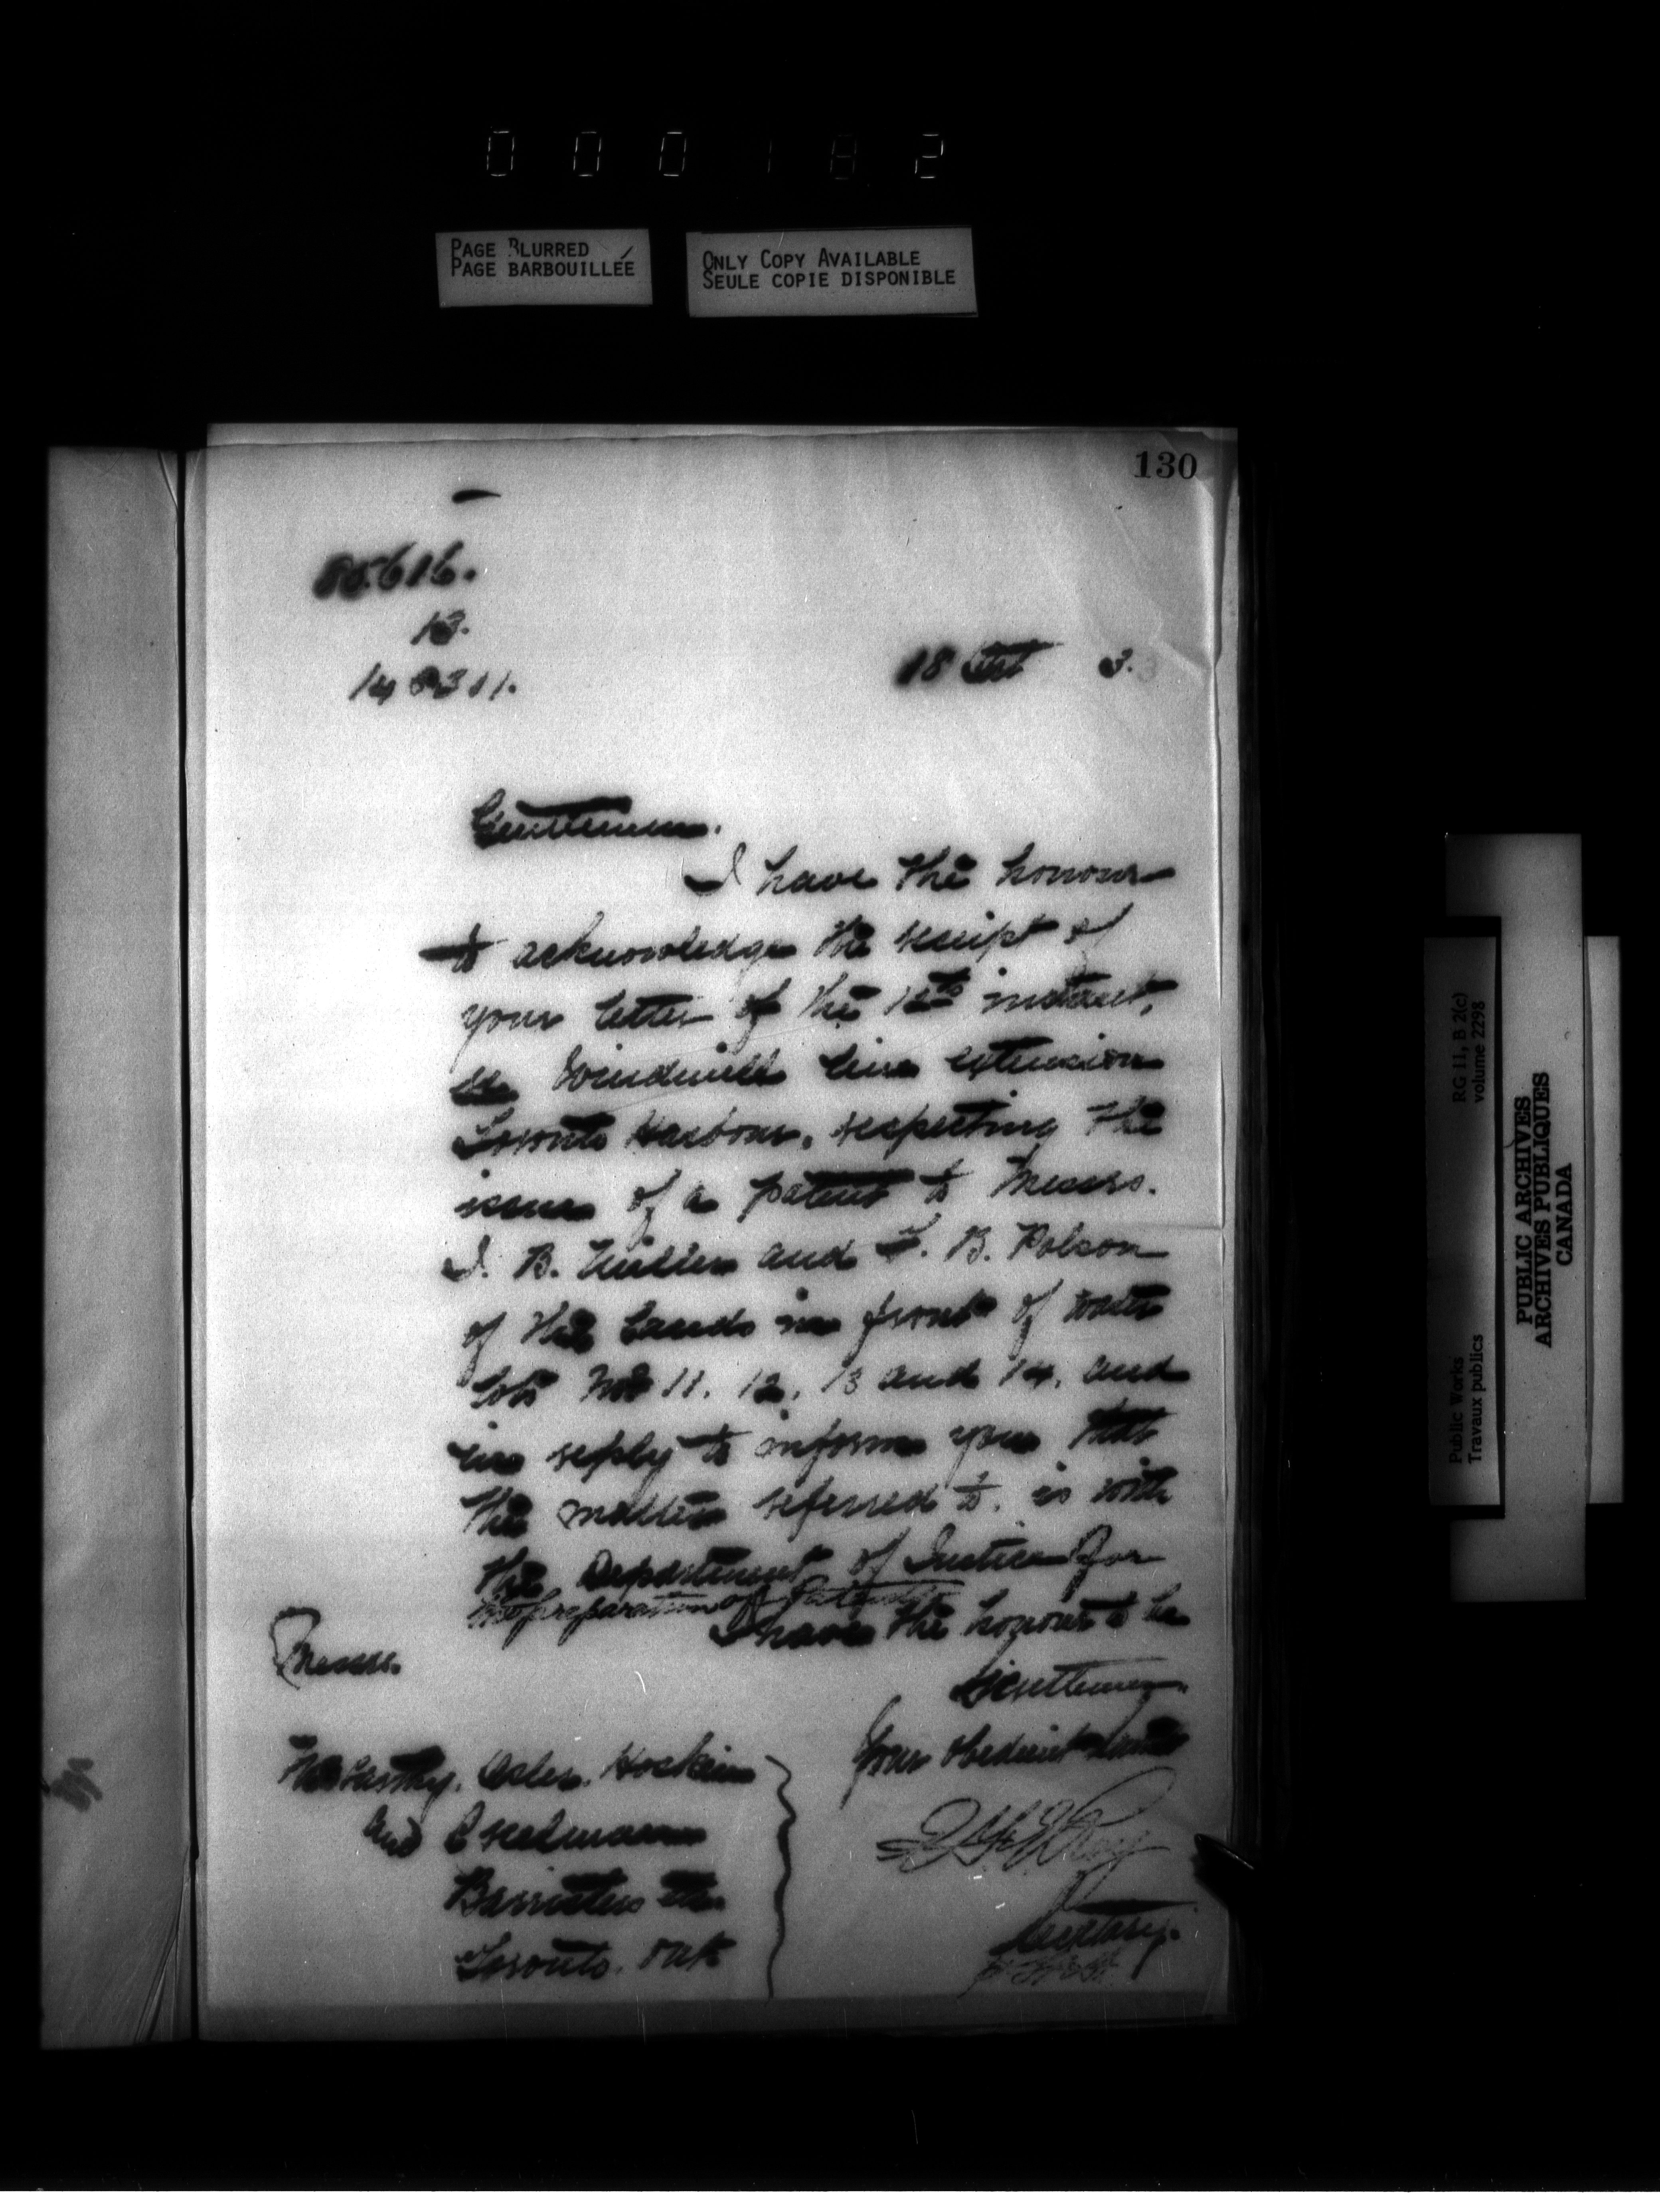 0 0 0 1 8 2
PAGE BLURRED
PAGE BARBOUILLÉE
ONLY COPY AVAILABLE
SEULE COPIE DISPONIBLE
130
13.
18 Oct 3.
Gentlemen.
I have the honour
to acknowledge the receipt of
your letter of the 12th instant,
re Windmill line extension
Toronto Harbour, respecting the
issue of a patent to Messrs.
I. B. Miller and F. B. Polson
of the lands in front of water
lots Nos 11. 12. 13 and 14. and
in reply to inform you that
the matter referred to. is with
the Department of Justice for
the preparation of Patent
I have the honour to be
Gentlemen.
Your obedient servant
Secretary.
Messrs.
McCarthy. Osler. Hoskin
and Creelman
Barristers etc.
Toronto. Ont.
Public Works
Travaux publics
RG 11, B 2(c)
volume 2298
PUBLIC ARCHIVES
ARCHIVES PUBLIQUES
CANADA